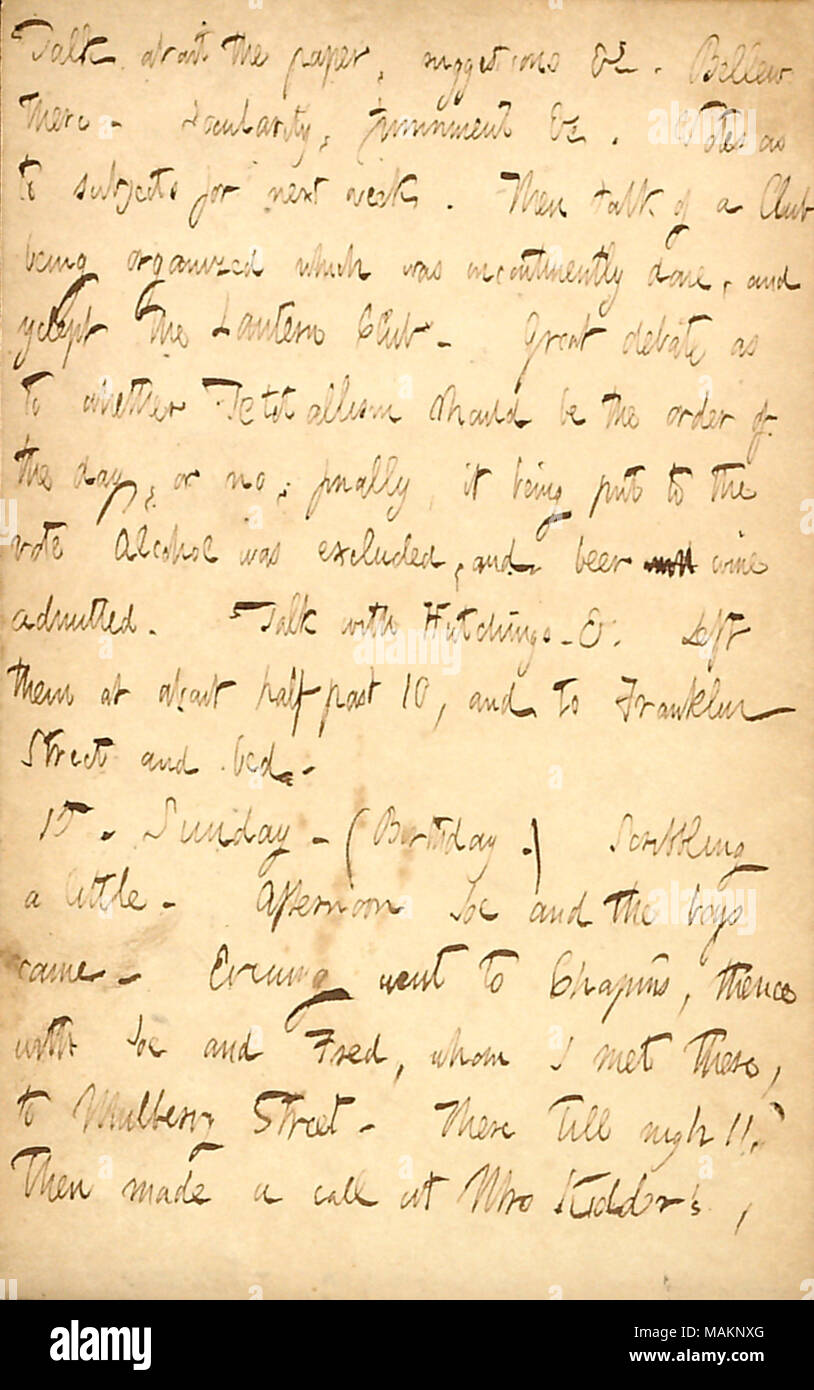 Talk about the paper, suggestions &c. Bellew
there - Jocularity, punment &c. Votes as
to subjects for next week. Then talk of a Club
being organized which was incontinently done, and
yclept the Lantern Club - Great debate as
to whether Tetotallism should be the order of
the day, or no, finally, it being put to the
vote Alcohol was excluded, and beer wine
admitted. Talk with Hutchings - &. Left
them at about half past 10, and to Franklin
Street and bed. -
15. Sunday - (Birthday.) Scribbling
a little - Afternoon Joe and the boys
came - Evening went to Chapins, thence
with Joe and Fred, whom I met there,
to Mulberry Street - There till nigh 11.
Then made a call at Mrs Kidder's,
alamy
Image ID: MAKNXG
www.alamy.com